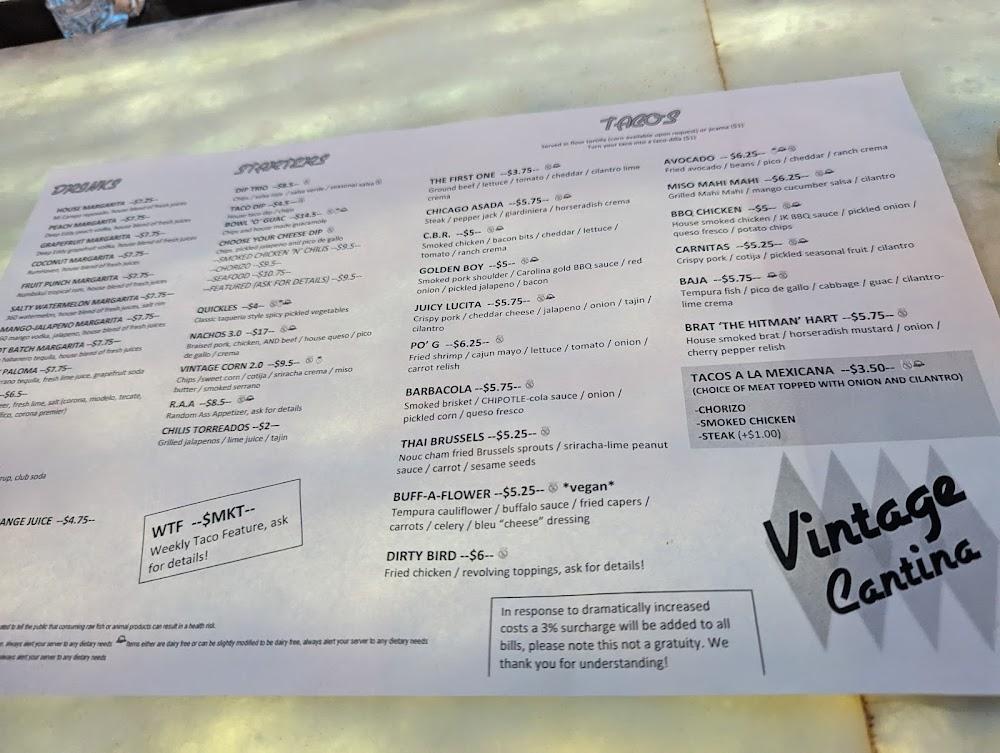 DRINKS
HOUSE MARGARITA --$7.25--
Mi Campo reposado, house blend of fresh juices
PEACH MARGARITA --$7.75--
Deep Eddy peach vodka, house blend of fresh juices
GRAPEFRUIT MARGARITA --$7.75--
Deep Eddy grapefruit vodka, house blend of fresh juices
COCONUT MARGARITA --$7.75--
RumHaven, house blend of fresh juices
FRUIT PUNCH MARGARITA --$7.75--
Rumbullut tropical rum, house blend of fresh juices
SALTY WATERMELON MARGARITA --$7.75--
360 watermelon, house blend of fresh juices, salt rim
MANGO-JALAPENO MARGARITA --$7.75--
60 mango vodka, jalapeno, house blend of fresh juices
OT BATCH MARGARITA --$7.75--
habanero tequila, house blend of fresh juices
PALOMA --$7.75--
rano tequila, fresh lime juice, grapefruit soda
--$6.5--
eer, fresh lime, salt (corona, modelo, tecate,
fico, corona premier)
rup, club soda
ANGE JUICE --$4.75--
STARTERS
DIP TRIO --$8.5--
Chips / salsa roja / salsa verde / seasonal salsa
TACO DIP --$4.5--
House taco dip / chips
BOWL 'O' GUAC --$14.5--
Chips and house made guacamole
CHOOSE YOUR CHEESE DIP
Chips, pickled jalapeno and pico de gallo
-SMOKED CHICKEN 'N' CHILIS --$9.5--
-CHORIZO --$9.5--
-SEAFOOD --$10.75--
-FEATURED (ASK FOR DETAILS) --$9.5--
QUICKLES --$4--
Classic taqueria style spicy pickled vegetables
NACHOS 3.0 --$17--
Braised pork, chicken, AND beef / house queso / pico
de gallo / crema
VINTAGE CORN 2.0 --$9.5--
Chips /sweet corn / cotija / sriracha crema / miso
butter / smoked serrano
R.A.A --$8.5--
Random Ass Appetizer, ask for details
CHILIS TORREADOS --$2--
Grilled jalapenos / lime juice / tajin
WTF --$MKT--
Weekly Taco Feature, ask
for details!
TACOS
Served in flour tortilla (corn available upon request) or jicama ($1)
Turn your taco into a taco-dilla ($1)
THE FIRST ONE --$3.75--
Ground beef / lettuce / tomato / cheddar / cilantro lime
crema
CHICAGO ASADA --$5.75--
Steak / pepper jack / giardiniera / horseradish crema
C.B.R. --$5--
Smoked chicken / bacon bits / cheddar / lettuce /
tomato / ranch crema
GOLDEN BOY --$5--
Smoked pork shoulder / Carolina gold BBQ sauce / red
onion / pickled jalapeno / bacon
JUICY LUCITA --$5.75--
Crispy pork / cheddar cheese / jalapeno / onion / tajin /
cilantro
PO' G --$6.25--
Fried shrimp / cajun mayo / lettuce / tomato / onion /
carrot relish
BARBACOLA --$5.75--
Smoked brisket / CHIPOTLE-cola sauce / onion /
pickled corn / queso fresco
THAI BRUSSELS --$5.25--
Nouc cham fried Brussels sprouts / sriracha-lime peanut
sauce / carrot / sesame seeds
BUFF-A-FLOWER --$5.25-- *vegan*
Tempura cauliflower / buffalo sauce / fried capers /
carrots / celery / bleu "cheese" dressing
DIRTY BIRD --$6--
Fried chicken / revolving toppings, ask for details!
AVOCADO --$6.25--
Fried avocado / beans / pico / cheddar / ranch crema
MISO MAHI MAHI --$6.25--
Grilled Mahi Mahi / mango cucumber salsa / cilantro
BBQ CHICKEN --$5--
House smoked chicken / JK BBQ sauce / pickled onion /
queso fresco / potato chips
CARNITAS --$5.25--
Crispy pork / cotija / pickled seasonal fruit / cilantro
BAJA --$5.75--
Tempura fish / pico de gallo / cabbage / guac / cilantro-
lime crema
BRAT 'THE HITMAN' HART --$5.75--
House smoked brat / horseradish mustard / onion /
cherry pepper relish
TACOS A LA MEXICANA --$3.50--
(CHOICE OF MEAT TOPPED WITH ONION AND CILANTRO)
-CHORIZO
-SMOKED CHICKEN
-STEAK (+$1.00)
Vintage
Cantina
In response to dramatically increased
costs a 3% surcharge will be added to all
bills, please note this not a gratuity. We
thank you for understanding!
ated to tell the public that consuming raw fish or animal products can result in a health risk.
always alert your server to any dietary needs Items either are dairy free or can be slightly modified to be dairy free, always alert your server to any dietary needs
always alert your server to any dietary needs